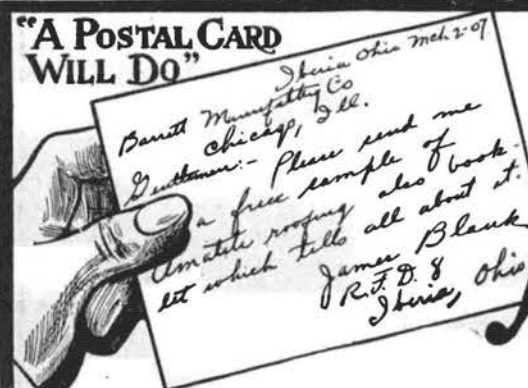 "A POSTAL CARD
WILL DO"
Iberia Ohio Mch 2-07
Barrett Manufactng Co
Chicago, Ill.
Gentlemen:- Please send me
a free sample of
Amatite roofing also book-
let which tells all about it.
James Blank
R.F.D. 8
Iberia, Ohio